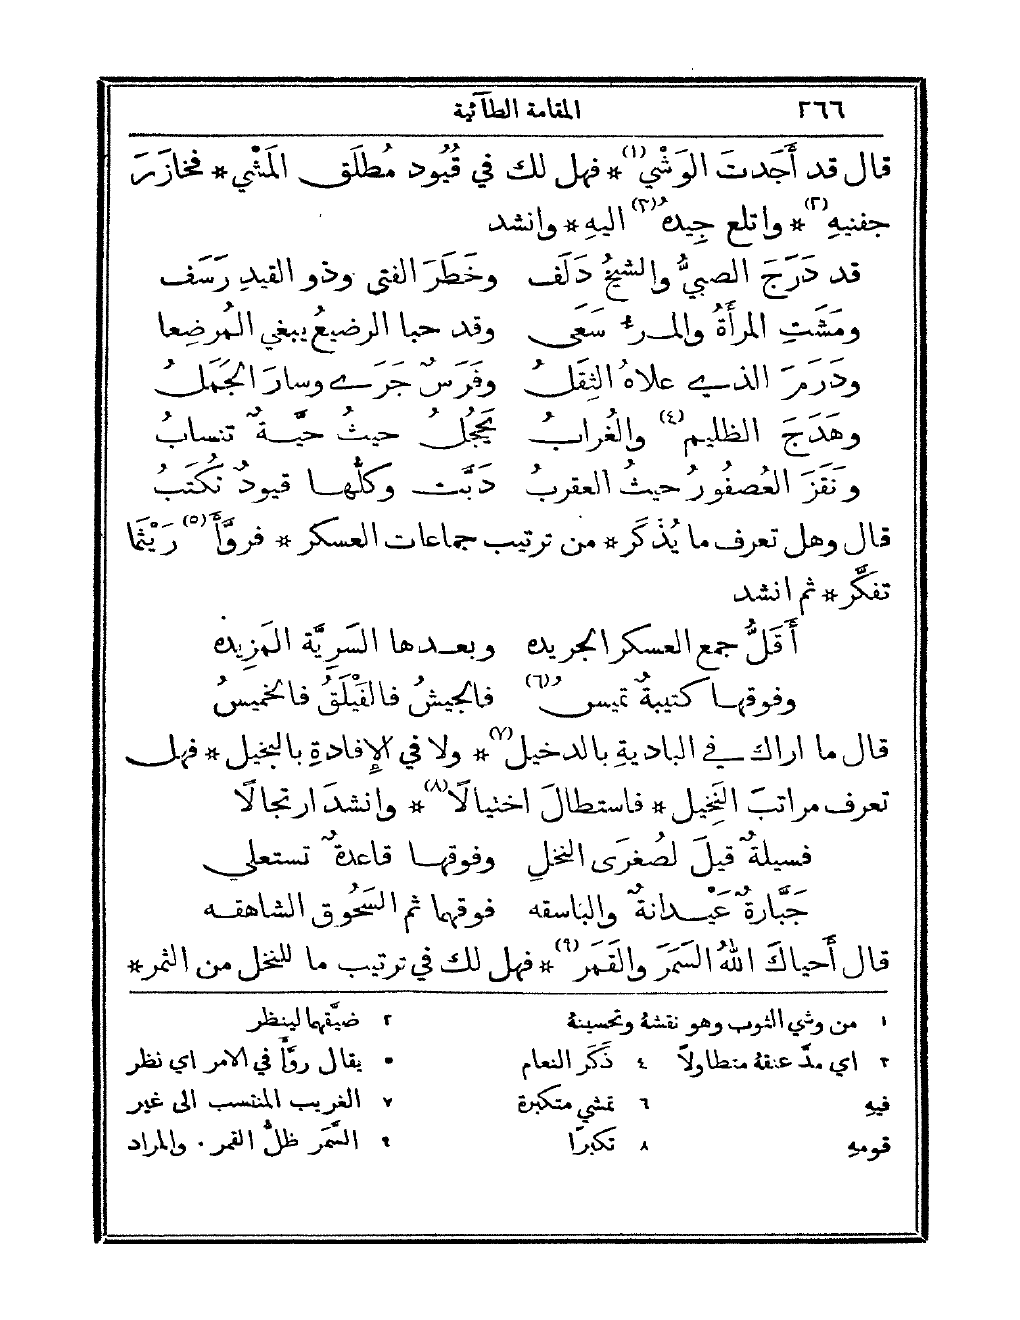 ٢٦٦ المقامة الطآئية
قال قد أَجَدتَ الوَشْي(١) * فهل لك في قُيُود مُطلَق المَشْي * فتخازَرَ
جفنيهِ(٢) * واتلع جِيدهُ(٣) اليهِ * وانشد
قد دَرَجَ الصبيُّ والشيخُ دَلَف وخَطَرَ الفتى وذو القيدِ رَسَف
ومَشَتِ المرأَةُ والمرءُ سَعَى وقد حبا الرضيعُ يبغي المُرضِعا
ودَرَمَ الذي علاهُ الثِقلُ وفَرَسٌ جَرَى وسارَ الجَمَلُ
وهَدَجَ الظليم(٤) والغُرابُ يَحجُلُ حيثُ حيَّةٌ تنسابُ
ونَقَزَ العُصفُورُ حيثُ العقربُ دَبَّت وكلُّها قيودٌ تُكتَبُ
قال وهل تعرف ما يُذْكَر * من ترتيب جماعات العسكر * فروَّأَ(٥) رَيْثَما
تفكَّر * ثم انشد
أَقَلُّ جمع العسكر الجريده وبعدها السَرِيَّة المَزِيده
وفوقها كتيبةٌ تميسُ(٦) فالجيشُ فالفَيْلَقُ فالخميسُ
قال ما اراك في البادية بالدخيل(٧) * ولا في الإِفادةِ بالبخيل * فهل
تعرف مراتبَ النَخِيل * فاستطالَ اختيالًا(٨) * وانشدَ ارتجالًا
فسيلةٌ قيلَ لصُغرَى النخلِ وفوقها قاعدةٌ تستعلي
جَبَّارةٌ عَيْدانةٌ والباسقه فوقها ثم السَحُوق الشاهقه
قال أَحياكَ اللهُ السَمَرَ والقَمَر(٩) * فهل لك في ترتيب ما للنخل من الثمر *
١ من وشي الثوب وهو نقشهُ وتحسينهُ ٢ ضيَّقهما لينظر
٣ اي مدَّ عنقهُ متطاولًا ٤ ذَكَر النعام ٥ يقال روَّأَ في الامر اي نظر
فيهِ ٦ تمشي متكبرة ٧ الغريب المنتسب الى غير
قومهِ ٨ تكبرًا ٩ السَّمَر ظلُّ القمر . والمراد